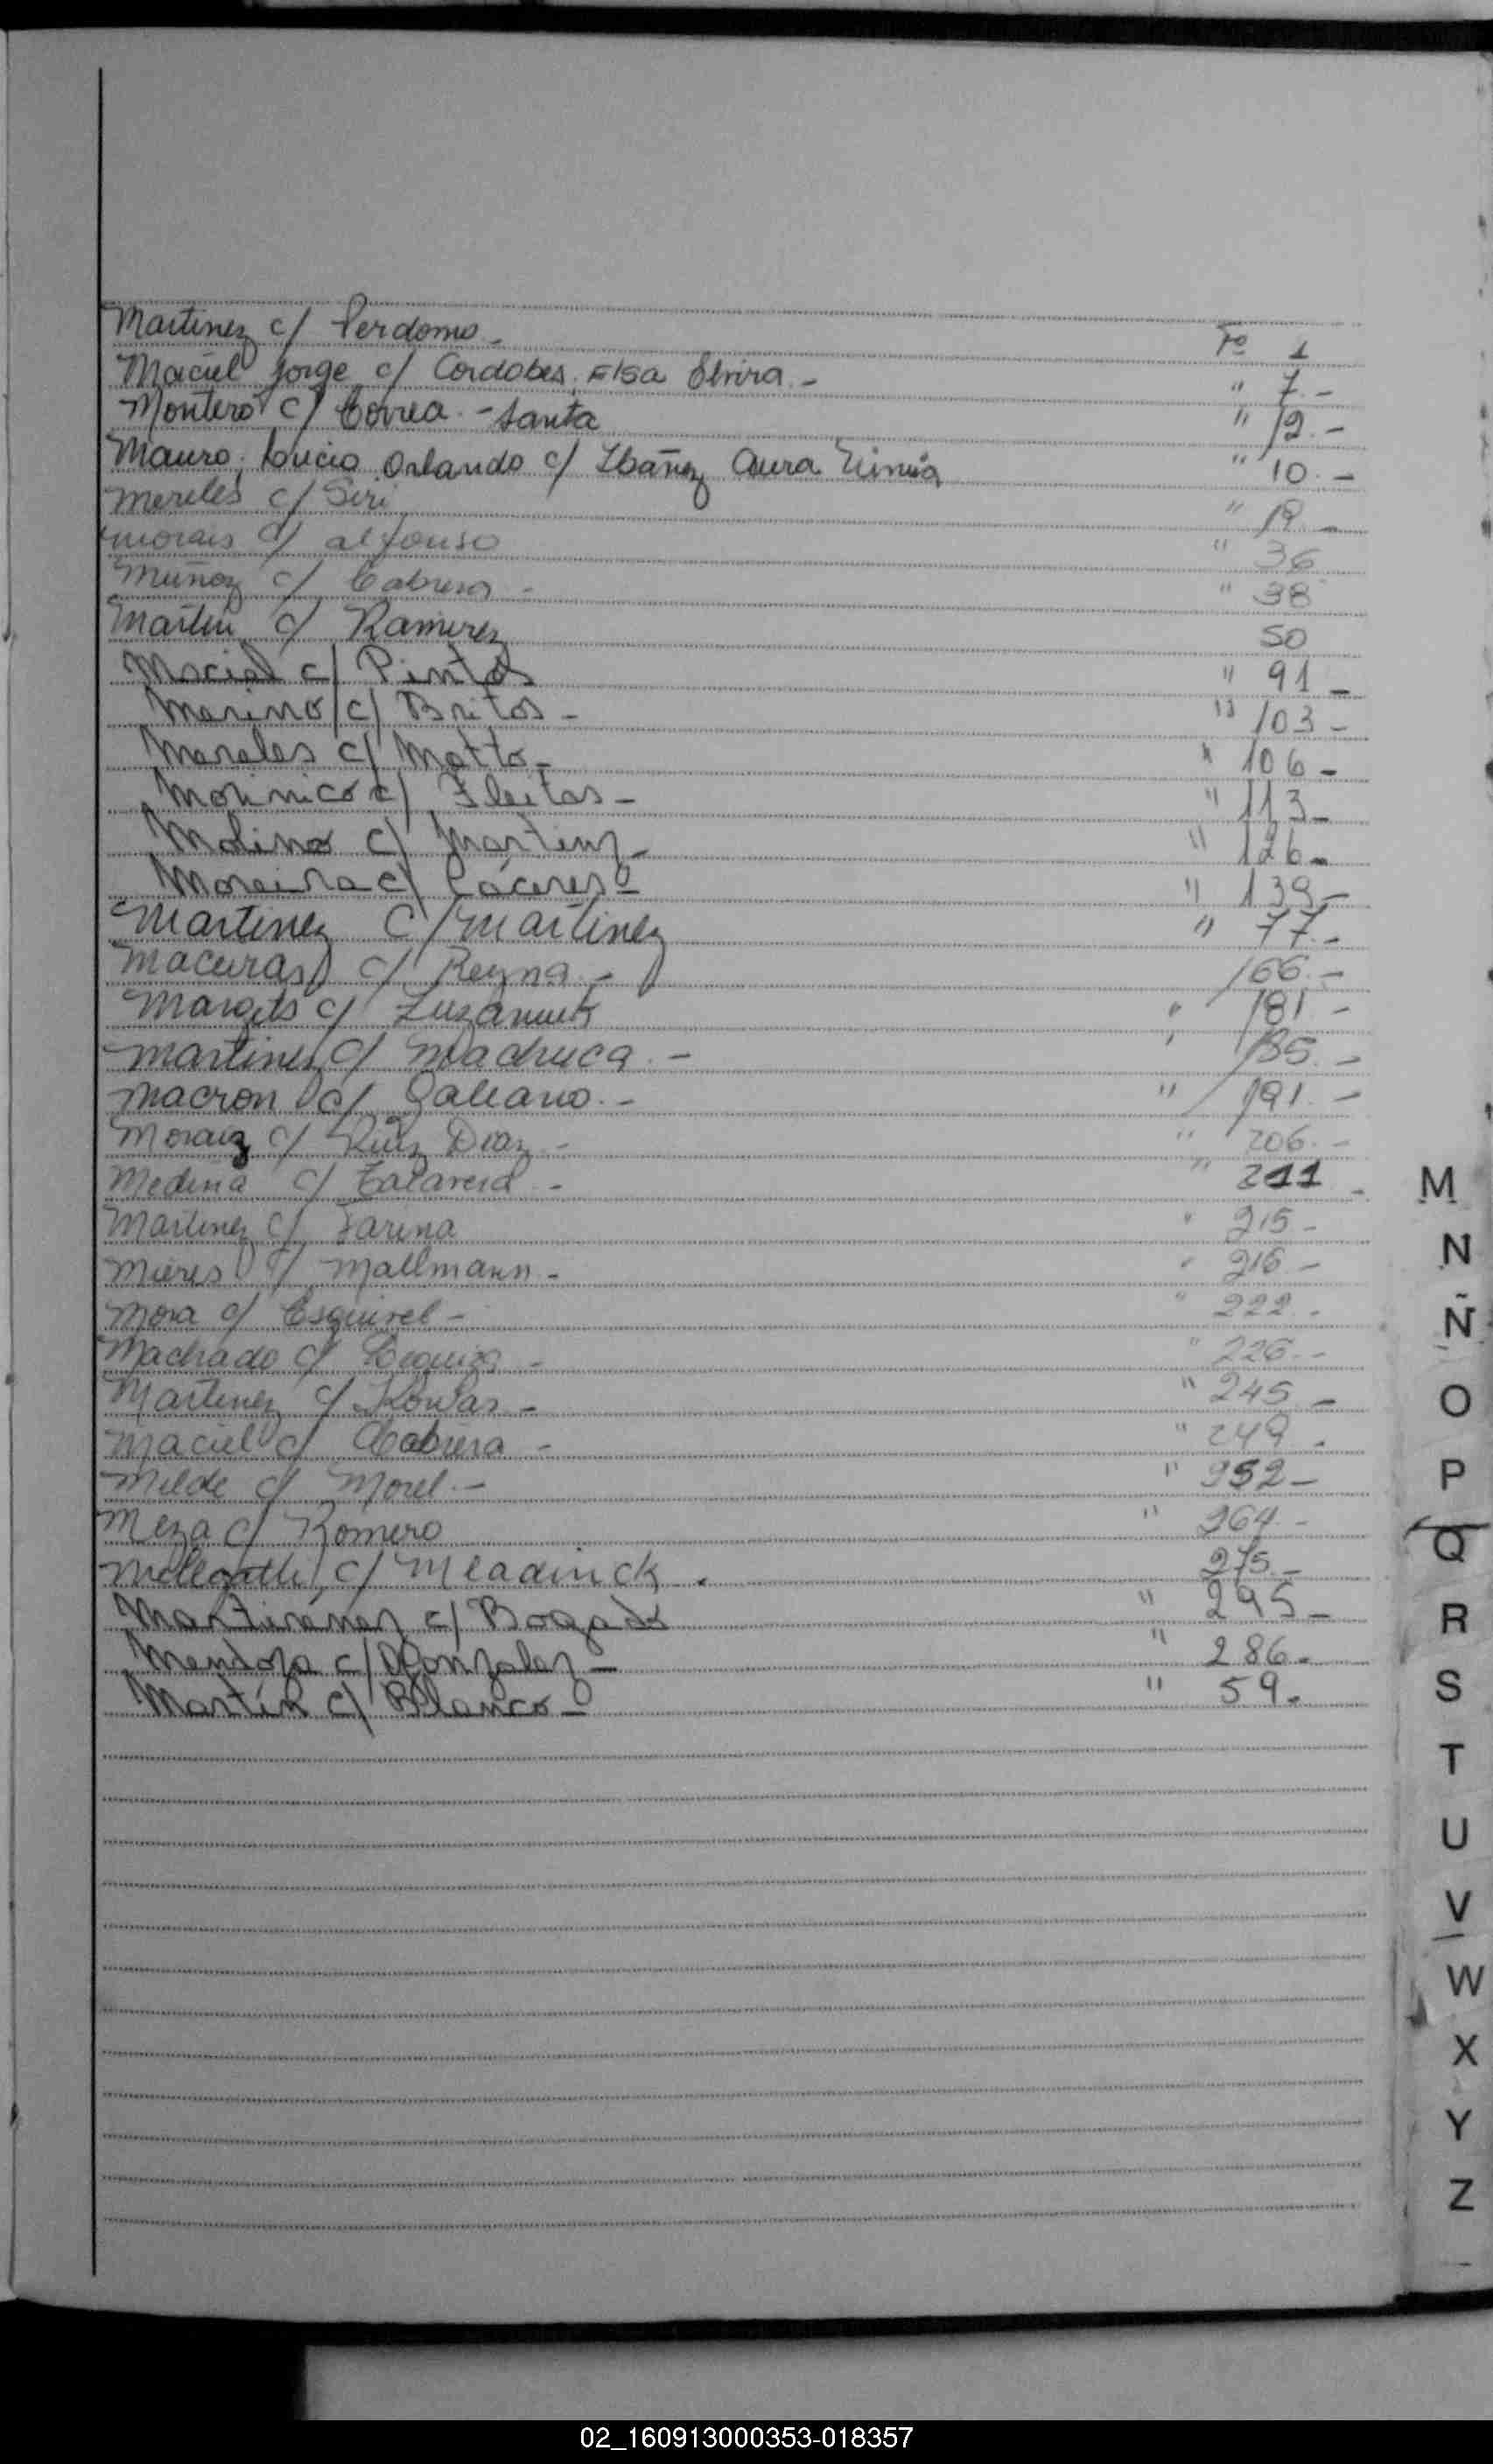 Martinez c/ Perdomo - Fº 1
Maciel Jorge c/ Cordobes, Elsa Elvira - " 7.-
Montero c/ Correa - Santa " 12.-
Mauro, Lucio Orlando c/ Ibañez Aura " 10.-
Mereles c/ Siri " 19.-
Morais c/ alfonso " 36
Muñoz c/ Cabrera - " 38
Martin c/ Ramirez 50
Macial c/ Pintos " 91 -
Merino c/ Britos - " 103 -
Mereles c/ Motto - " 106 -
c/ Fleitas - " 113 -
Molina c/ Martinz - " 126 -
Moreira c/ Cáceres - " 139 -
Martinez c/ Martinez " 77.-
c/ Reyna - 166.-
c/ " 181 -
Martinez c/ Machuca. - " 185. -
Macron c/ Galeano. - " 191. -
Moraiz c/ Ruiz Diaz - " 206. -
Medina c/ Talavera - " 211 -
Martinez c/ Farina " 215 -
Mieres c/ Mallmann - " 216 -
Mora c/ Esquivel - " 222 -
Machado c/ - " 226 -
Martinez c/ - " 245 -
Maciel c/ Cabrera - " 249 .
Milde c/ Morel - " 252 -
Meza c/ Romero " 264 -
c/ Mladinick . 275 -
c/ Bogado " 295 -
Mendoza c/ Gonzalez - " 286 -
Martin c/ Blanco - " 59 -
M
N
Ñ
O
P
Q
R
S
T
U
V
W
X
Y
Z
02_160913000353-018357